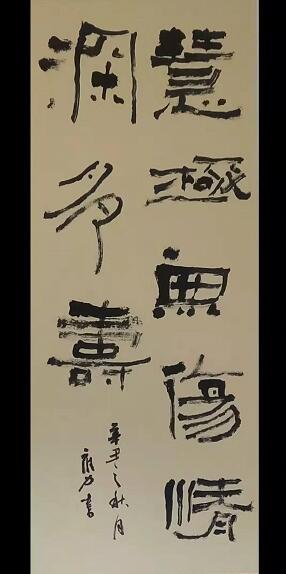 慧極無傷情
瀾多壽
辛丑之秋月
力書